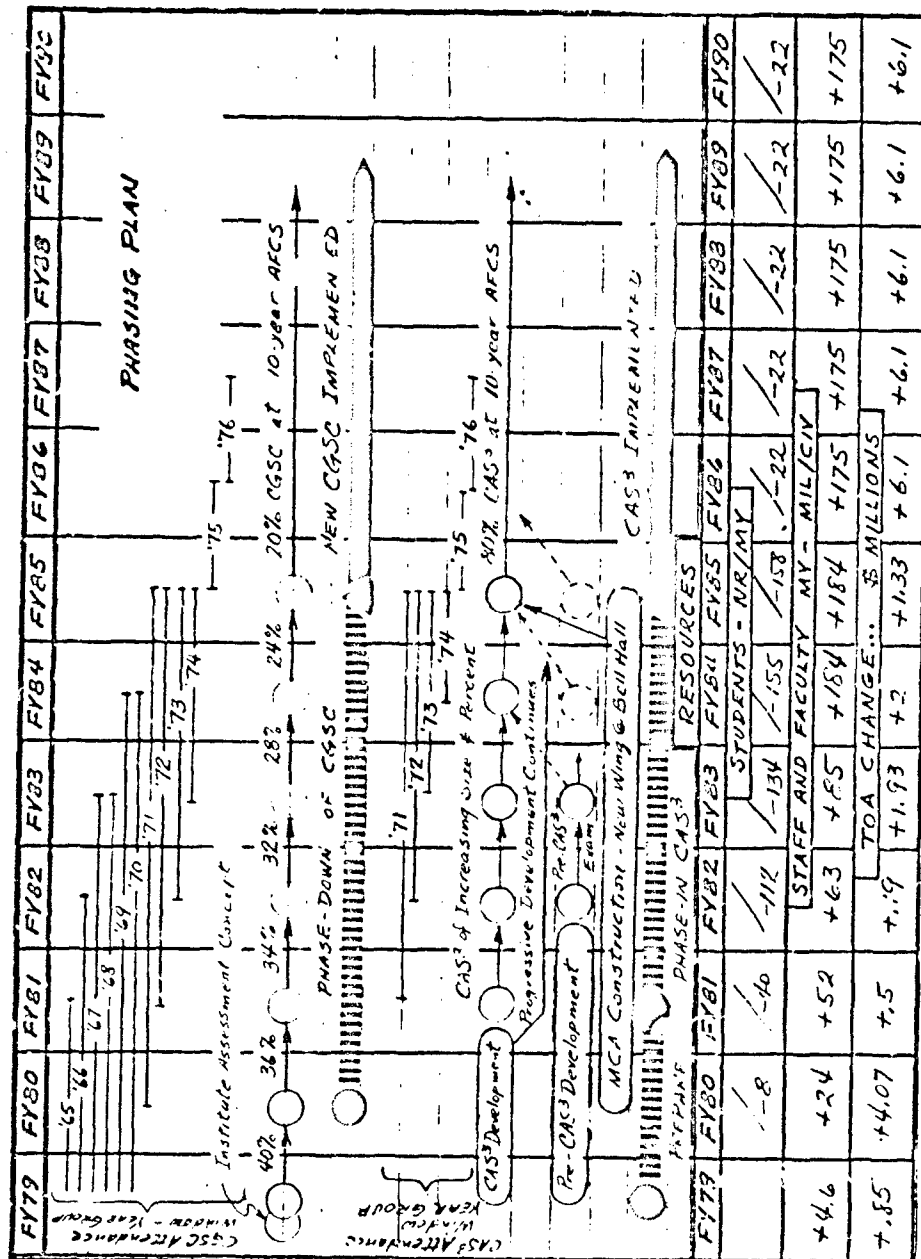 FY79 FY80 FY81 FY82 FY83 FY84 FY85 FY86 FY87 FY88 FY89 FY90
PHASING PLAN
CGSC Attendance
Window - Year Group
'65
'66
'67
'68
'69
'70
'71
'72
'73
'74
'75
'76
Institute Assessment Concept
40% 36% 34% 32% 28% 24% 70% CGSC at 10-year AFCS
PHASE-DOWN OF CGSC
NEW CGSC IMPLEMEN ED
CAS³ Attendance
Window
YEAR GROUP
'71
'72
'73
'74
'75
'76
CAS³ of Increasing Size & Percent
CAS³ Development
80% CAS³ at 10 year AFCS
Progressive Development Continues
Pre-CAS³ Development
Pre-CAS³
Exam
MCA Construction - New Wing to Bell Hall
PREPARE
PHASE-IN CAS³
CAS³ IMPLEMENTED
RESOURCES
FY79 FY80 FY81 FY82 FY83 FY84 FY85 FY86 FY87 FY88 FY89 FY90
STUDENTS - NR/MY
/-8 /-40 /-112 /-134 /-155 /-158 /-22 /-22 /-22 /-22 /-22
STAFF AND FACULTY MY - MIL/CIV
+4.6 +24 +52 +63 +85 +184 +184 +175 +175 +175 +175 +175
TOA CHANGE... $ MILLIONS
+.85 +4.07 +.5 +.9 +1.93 +2 +1.33 +6.1 +6.1 +6.1 +6.1 +6.1